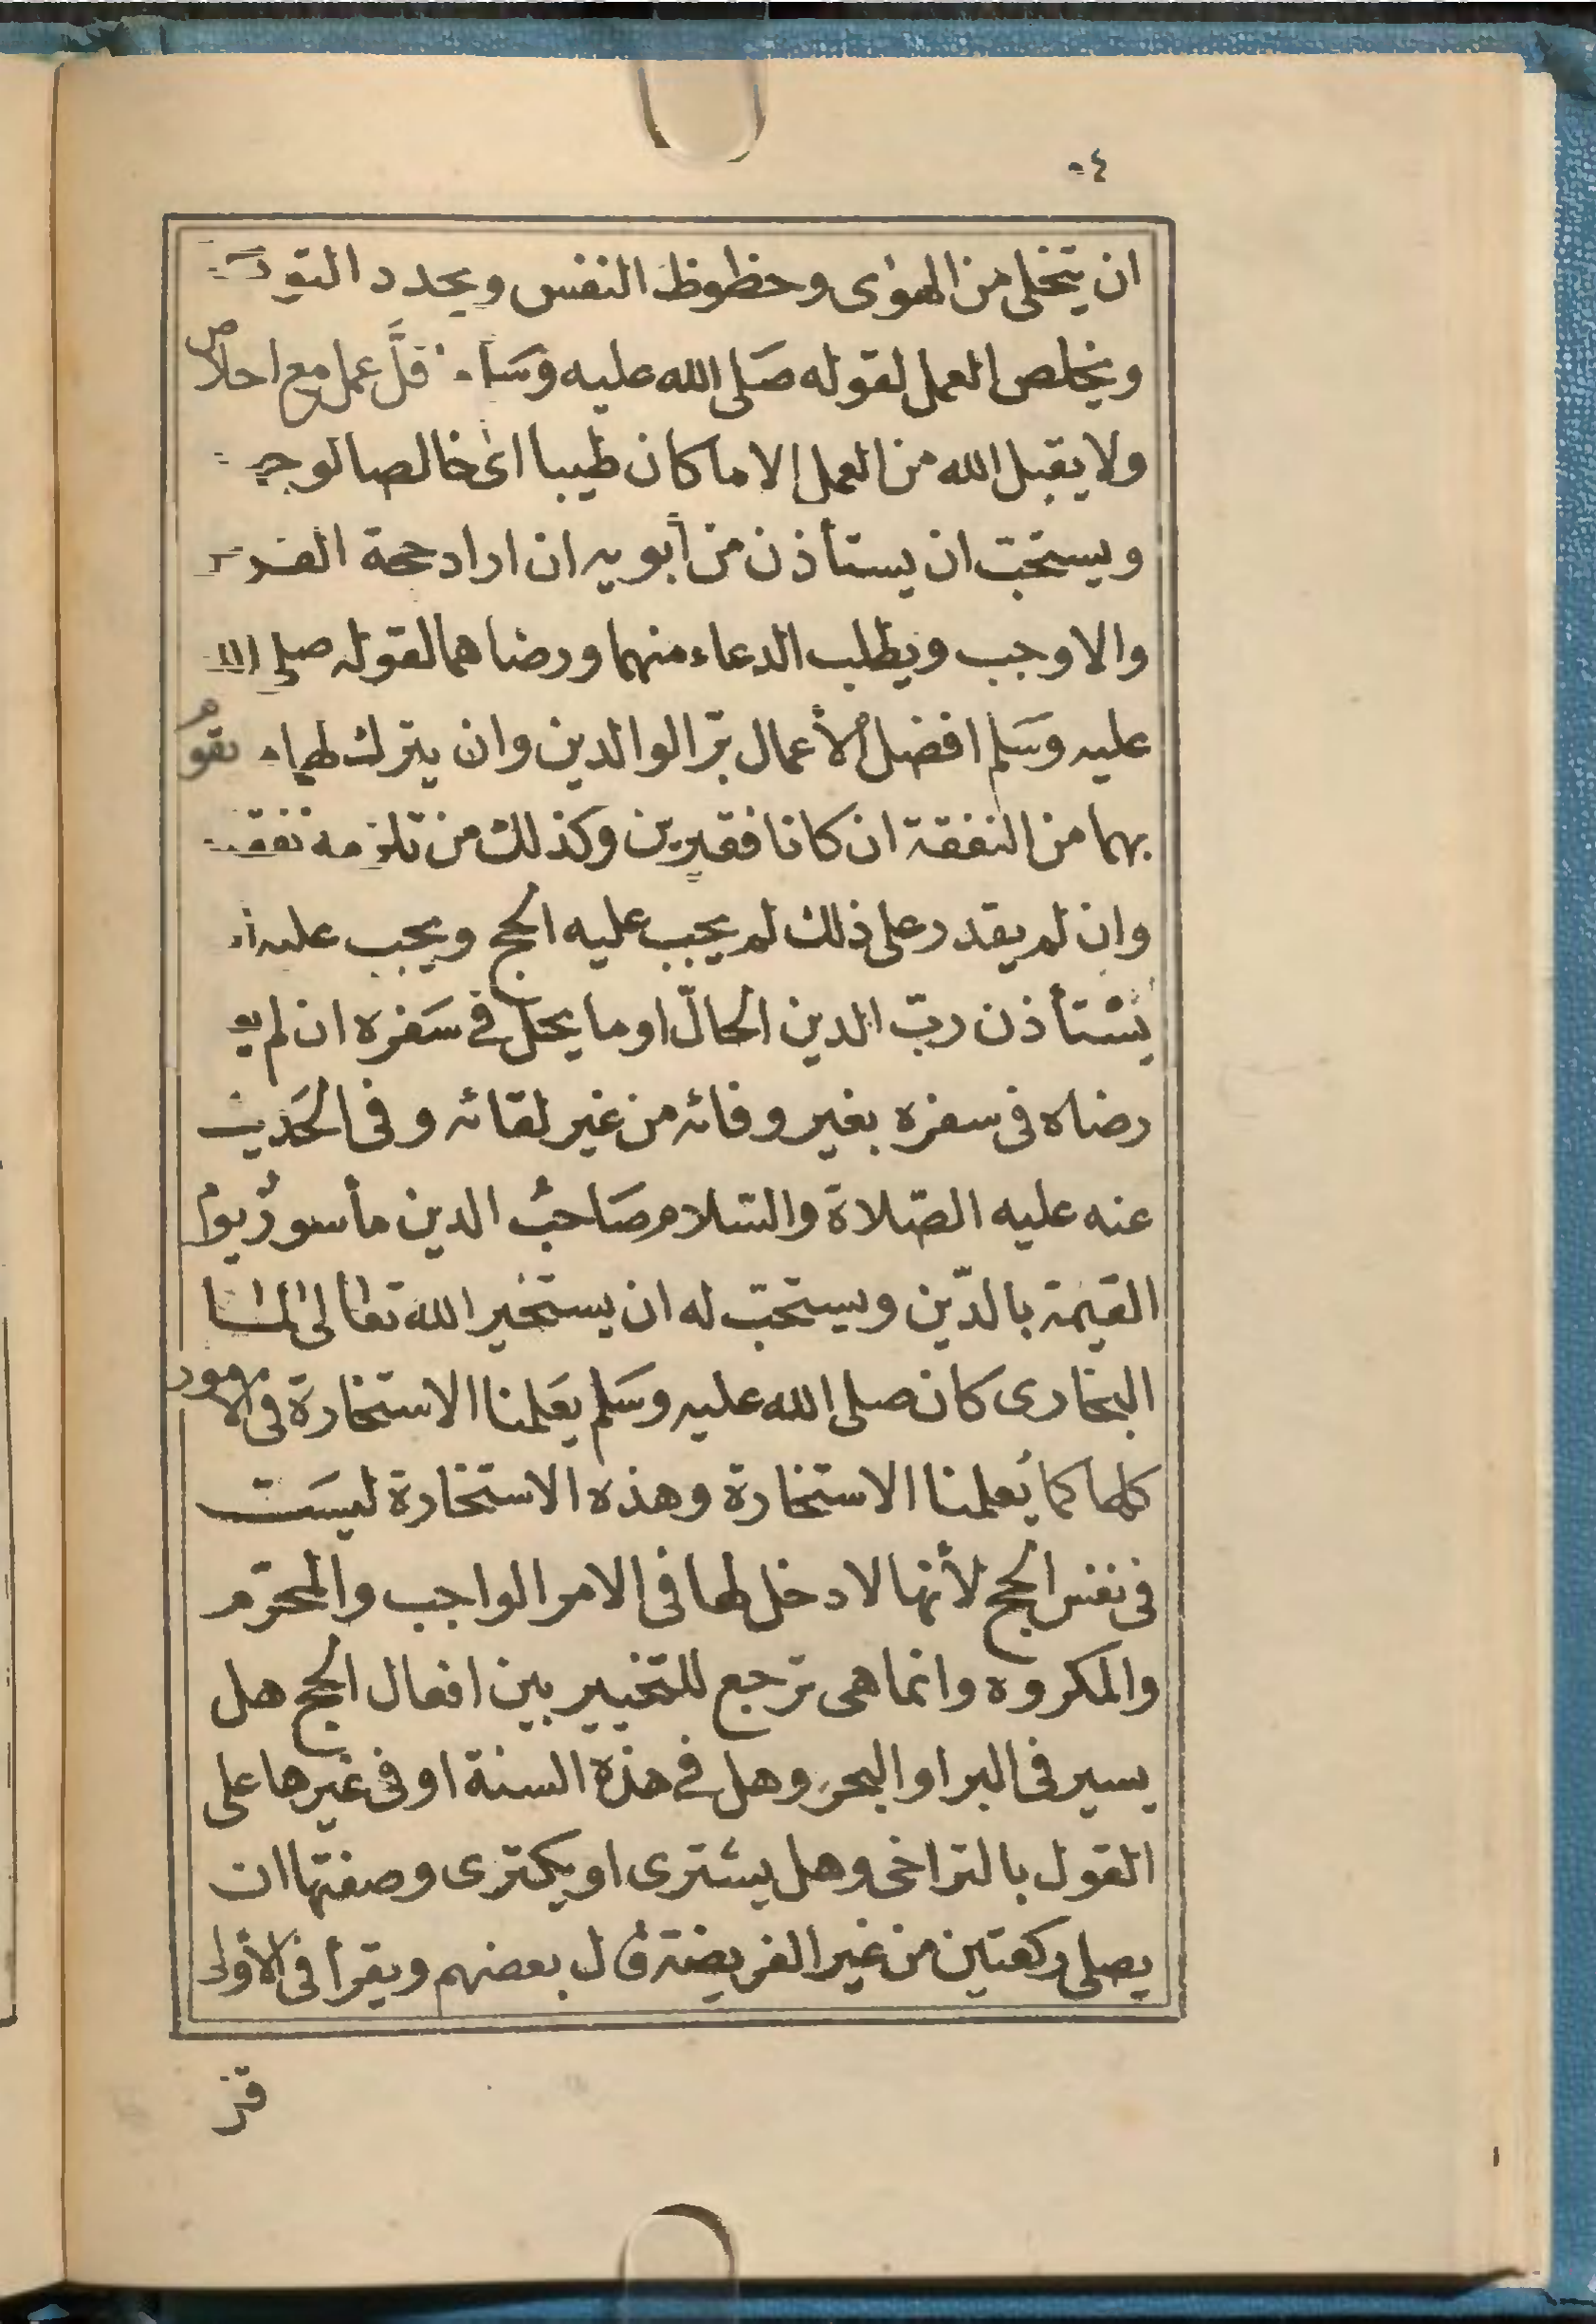 ٤٠
ان يتخلى من الهوى وحظوظ النفس ويجدد
ويخلص العمل لقوله صلى الله عليه وسلم قلَّ عمل مع اخلاص
ولا يقبل الله من العمل الا ما كان طيبا اى خالصا
ويستحب ان يستأذن من أبويه ان اراد حجة
والا وجب ويطلب الدعاء منهما ورضاهما لقوله صلى الله
عليه وسلم افضل الأعمال برّ الوالدين وان يترك لهما يقوم
بهما من النفقة ان كانا فقيرين وكذلك من تلزمه نفقته
وان لم يقدر على ذلك لم يجب عليه الحج ويجب عليه ان
يستأذن ربّ الدين الحالّ او ما يحل فى سفره ان لم
رضاه فى سفره بغير وفائه من غير لقائه وفى الحديث
عنه عليه الصّلاة والسّلام صَاحبُ الدين مأسورٌ يوم
القيمة بالدّين ويستحب له ان يستخير الله تعالى
البخارى كان صلى الله عليه وسلم يعَلمنا الاستخارة فى الامور
كلها كما يُعلمنا الاستخارة وهذه الاستخارة ليسَت
فى نفس الحج لأنها لا دخل لها فى الامر الواجب والمحرّم
والمكروه وانما هى ترجع للتخيير بين افعال الحج هل
يسير فى البر او البحر وهل فى هذه السنة او فى غيرها على
القول بالتراخى وهل يشترى او يكترى وصفتها ان
يصلى ركعتين من غير الفريضة قال بعضهم ويقرأ فى الأولى